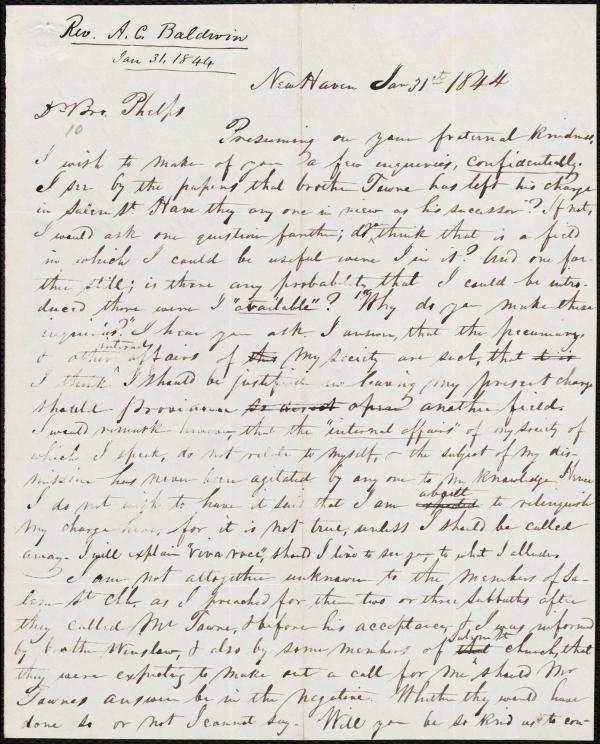 Rev. A. C. Baldwin
Jan 31, 1844
New Haven Jan 31st 1844
Dr Bro. Phelps
10
Presuming on your fraternal kindness,
I wish to make of you a few enquiries, confidentially.
I see by the papers that brother Towne has left his charge
in Salem St. Have they any one in view as his successor? If not,
I would ask one question farther; do you think that is a field
in which I could be useful were I in it? And one far-
ther still; is there any probability that I could be intro-
duced there were I "available"? "Why do you make these
enquiries?" I hear you ask. I answer, that the pecuniary,
& other internal affairs of this my society are such, that it is
I think I should be justified in leaving my present charge
should Providence so direct open another field.
I would remark however, that the "internal affairs" of my society of
which I speak, do not relate to myself, & the subject of my dis-
mission has never been agitated by any one to my knowledge. Hence
I do not wish to have it said that I am about to relinquish
my charge here, for it is not true, unless I should be called
away. I will explain "viva voce," should I live to see you, to what I allude.
I am not altogether unknown to the members of Sa-
lem St Chh. as I preached for them two or three Sabbaths after
they called Mr Towne, & before his acceptance, & I was informed
by brother Winslow, & also by some members of that church, that
they were expecting to make out a call for me "should Mr
Townes answer be in the negative. Whether they would have
done so or not I cannot say. Will you be so kind as to con-